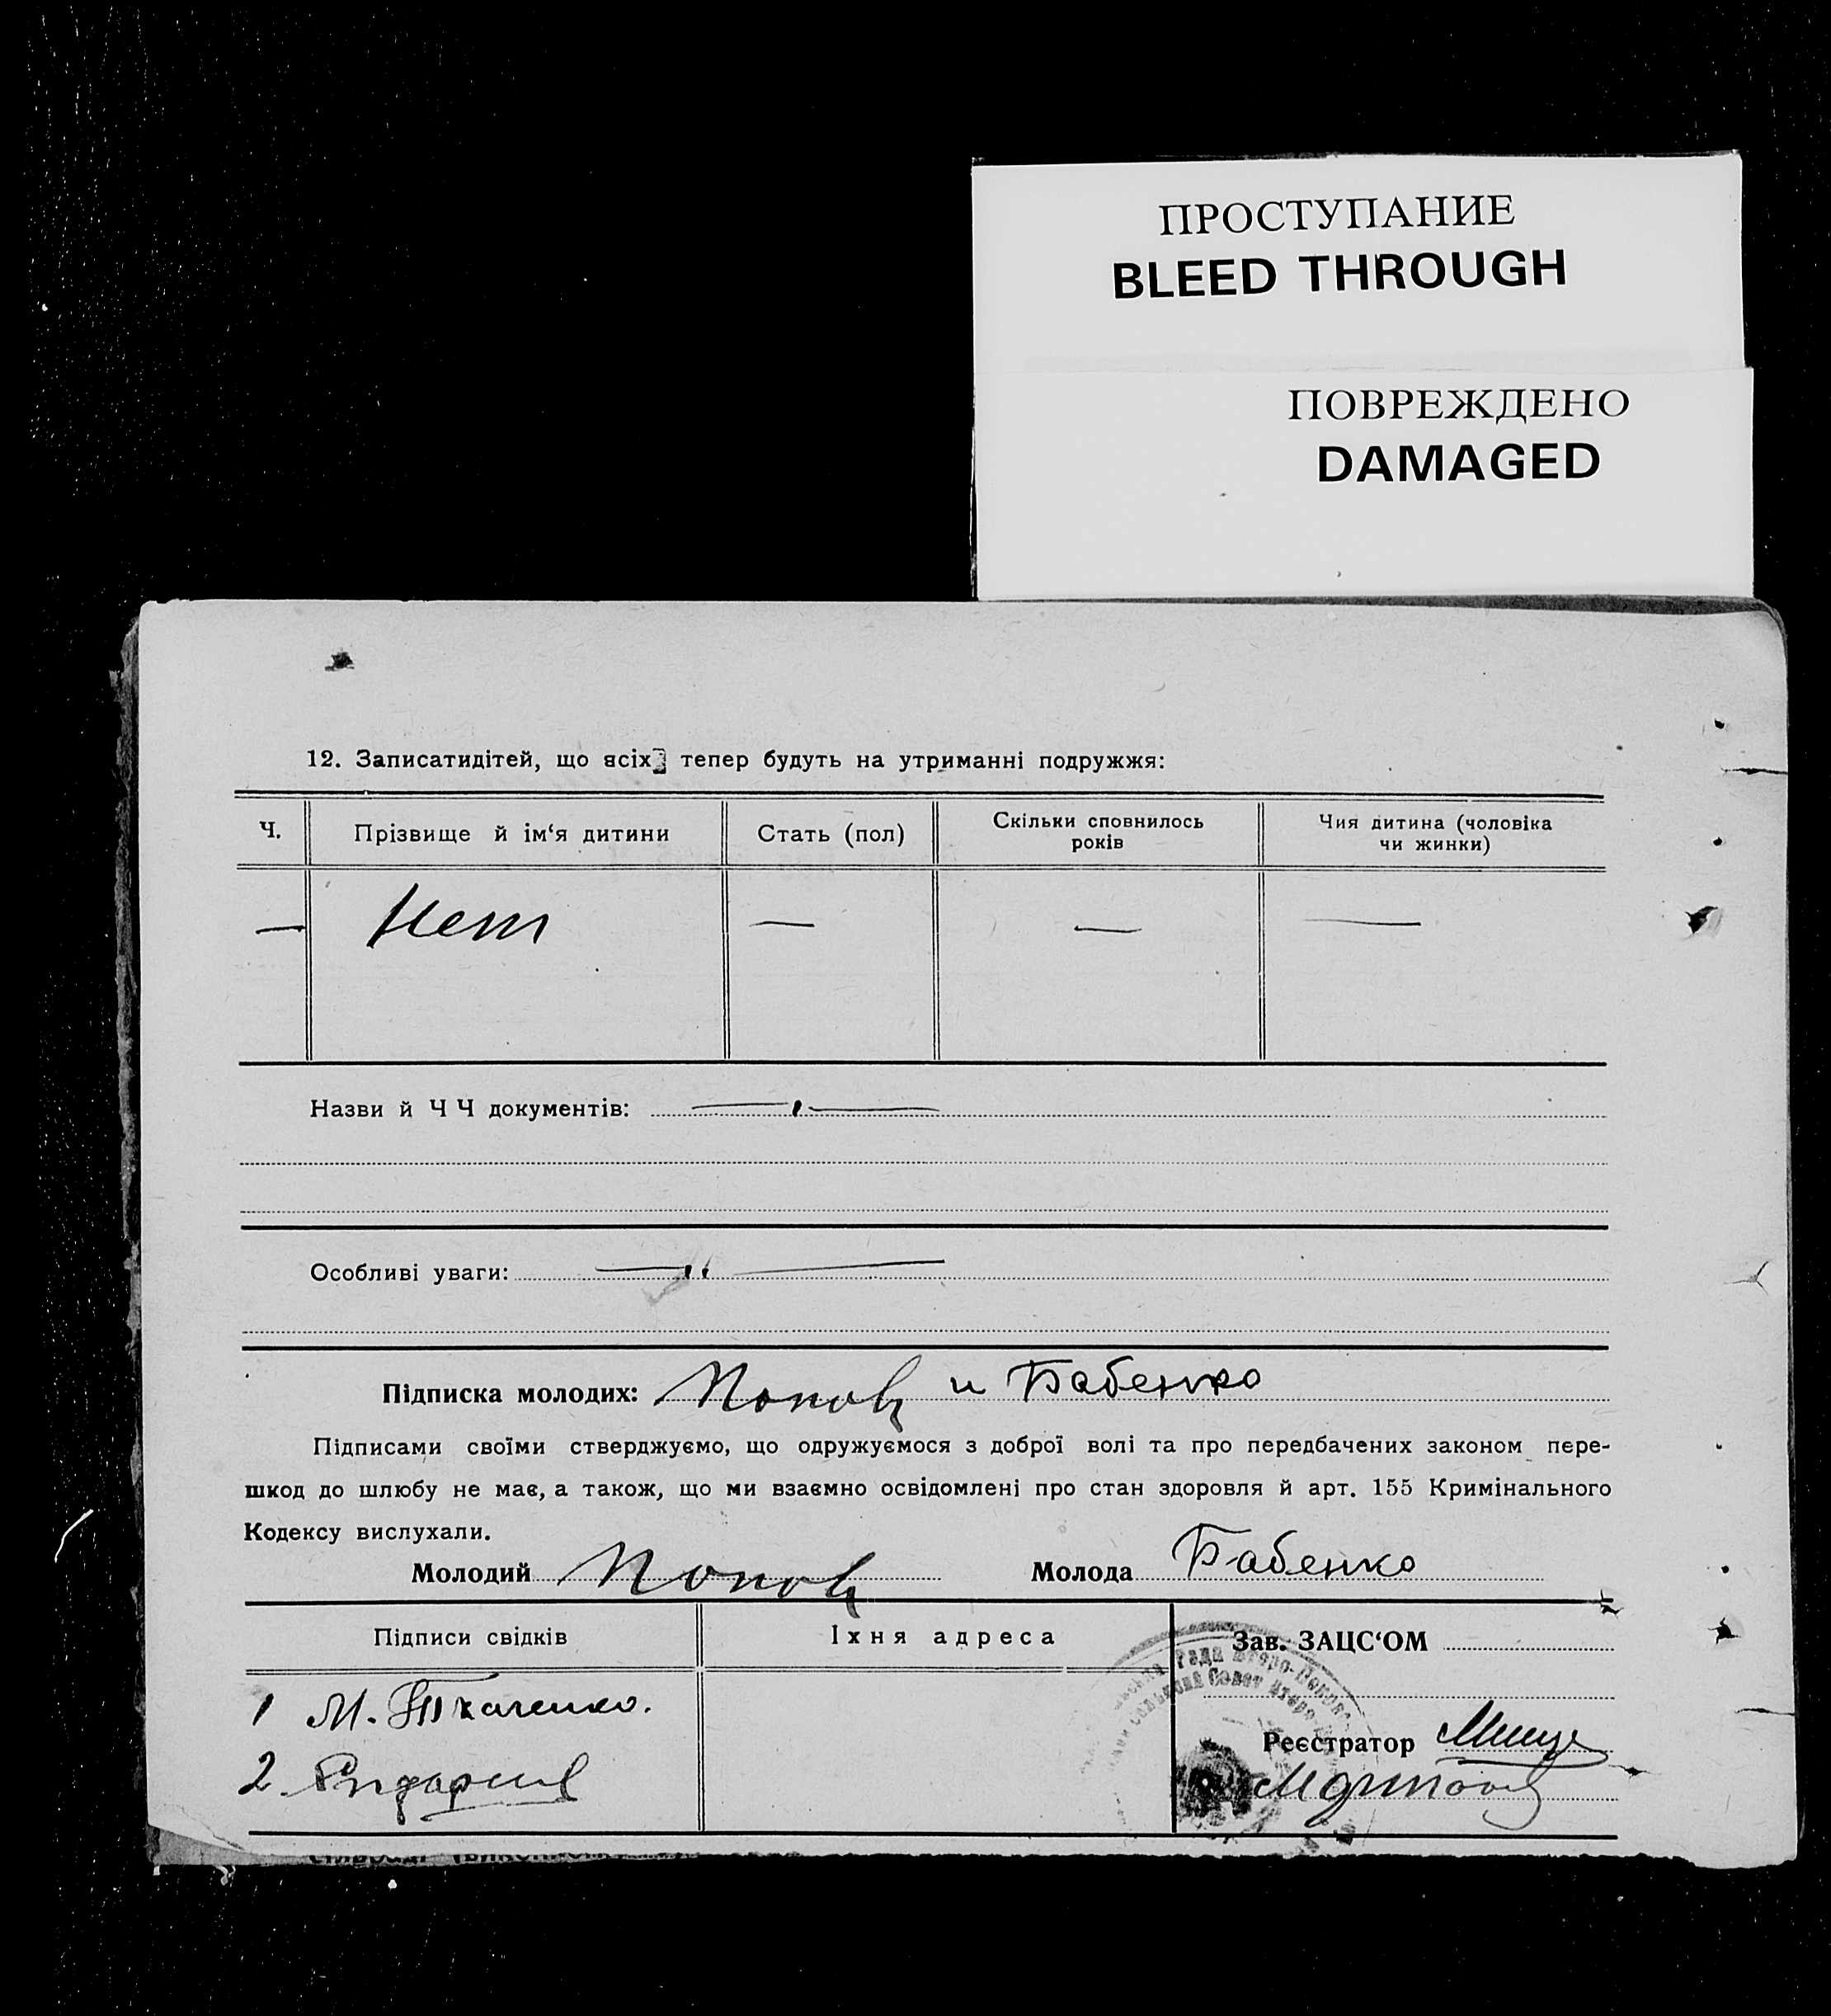 ПРОСТУПАНИЕ
BLEED THROUGH
ПОВРЕЖДЕНО
DAMAGED
12. Записатидітей, що всіх тепер будуть на утриманні подружжя:
Ч. Прізвище й ім‘я дитини Стать (пол) Скільки сповнилось років Чия дитина (чоловіка чи жинки)
— Нет — — —
Назви й Ч Ч документів:
Особливі уваги:
Підписка молодих: Попов и Бабенко
Підписами своїми стверджуємо, що одружуємося з доброї волі та про передбачених законом пере-
шкод до шлюбу не має, а також, що ми взаємно освідомлені про стан здоровля й арт. 155 Кримінального
Кодексу вислухали.
Молодий Попов Молода Бабенко
Підписи свідків Їхня адреса Зав. ЗАЦС‘ОМ
1 М. Ткаченко.
Реєстратор
2